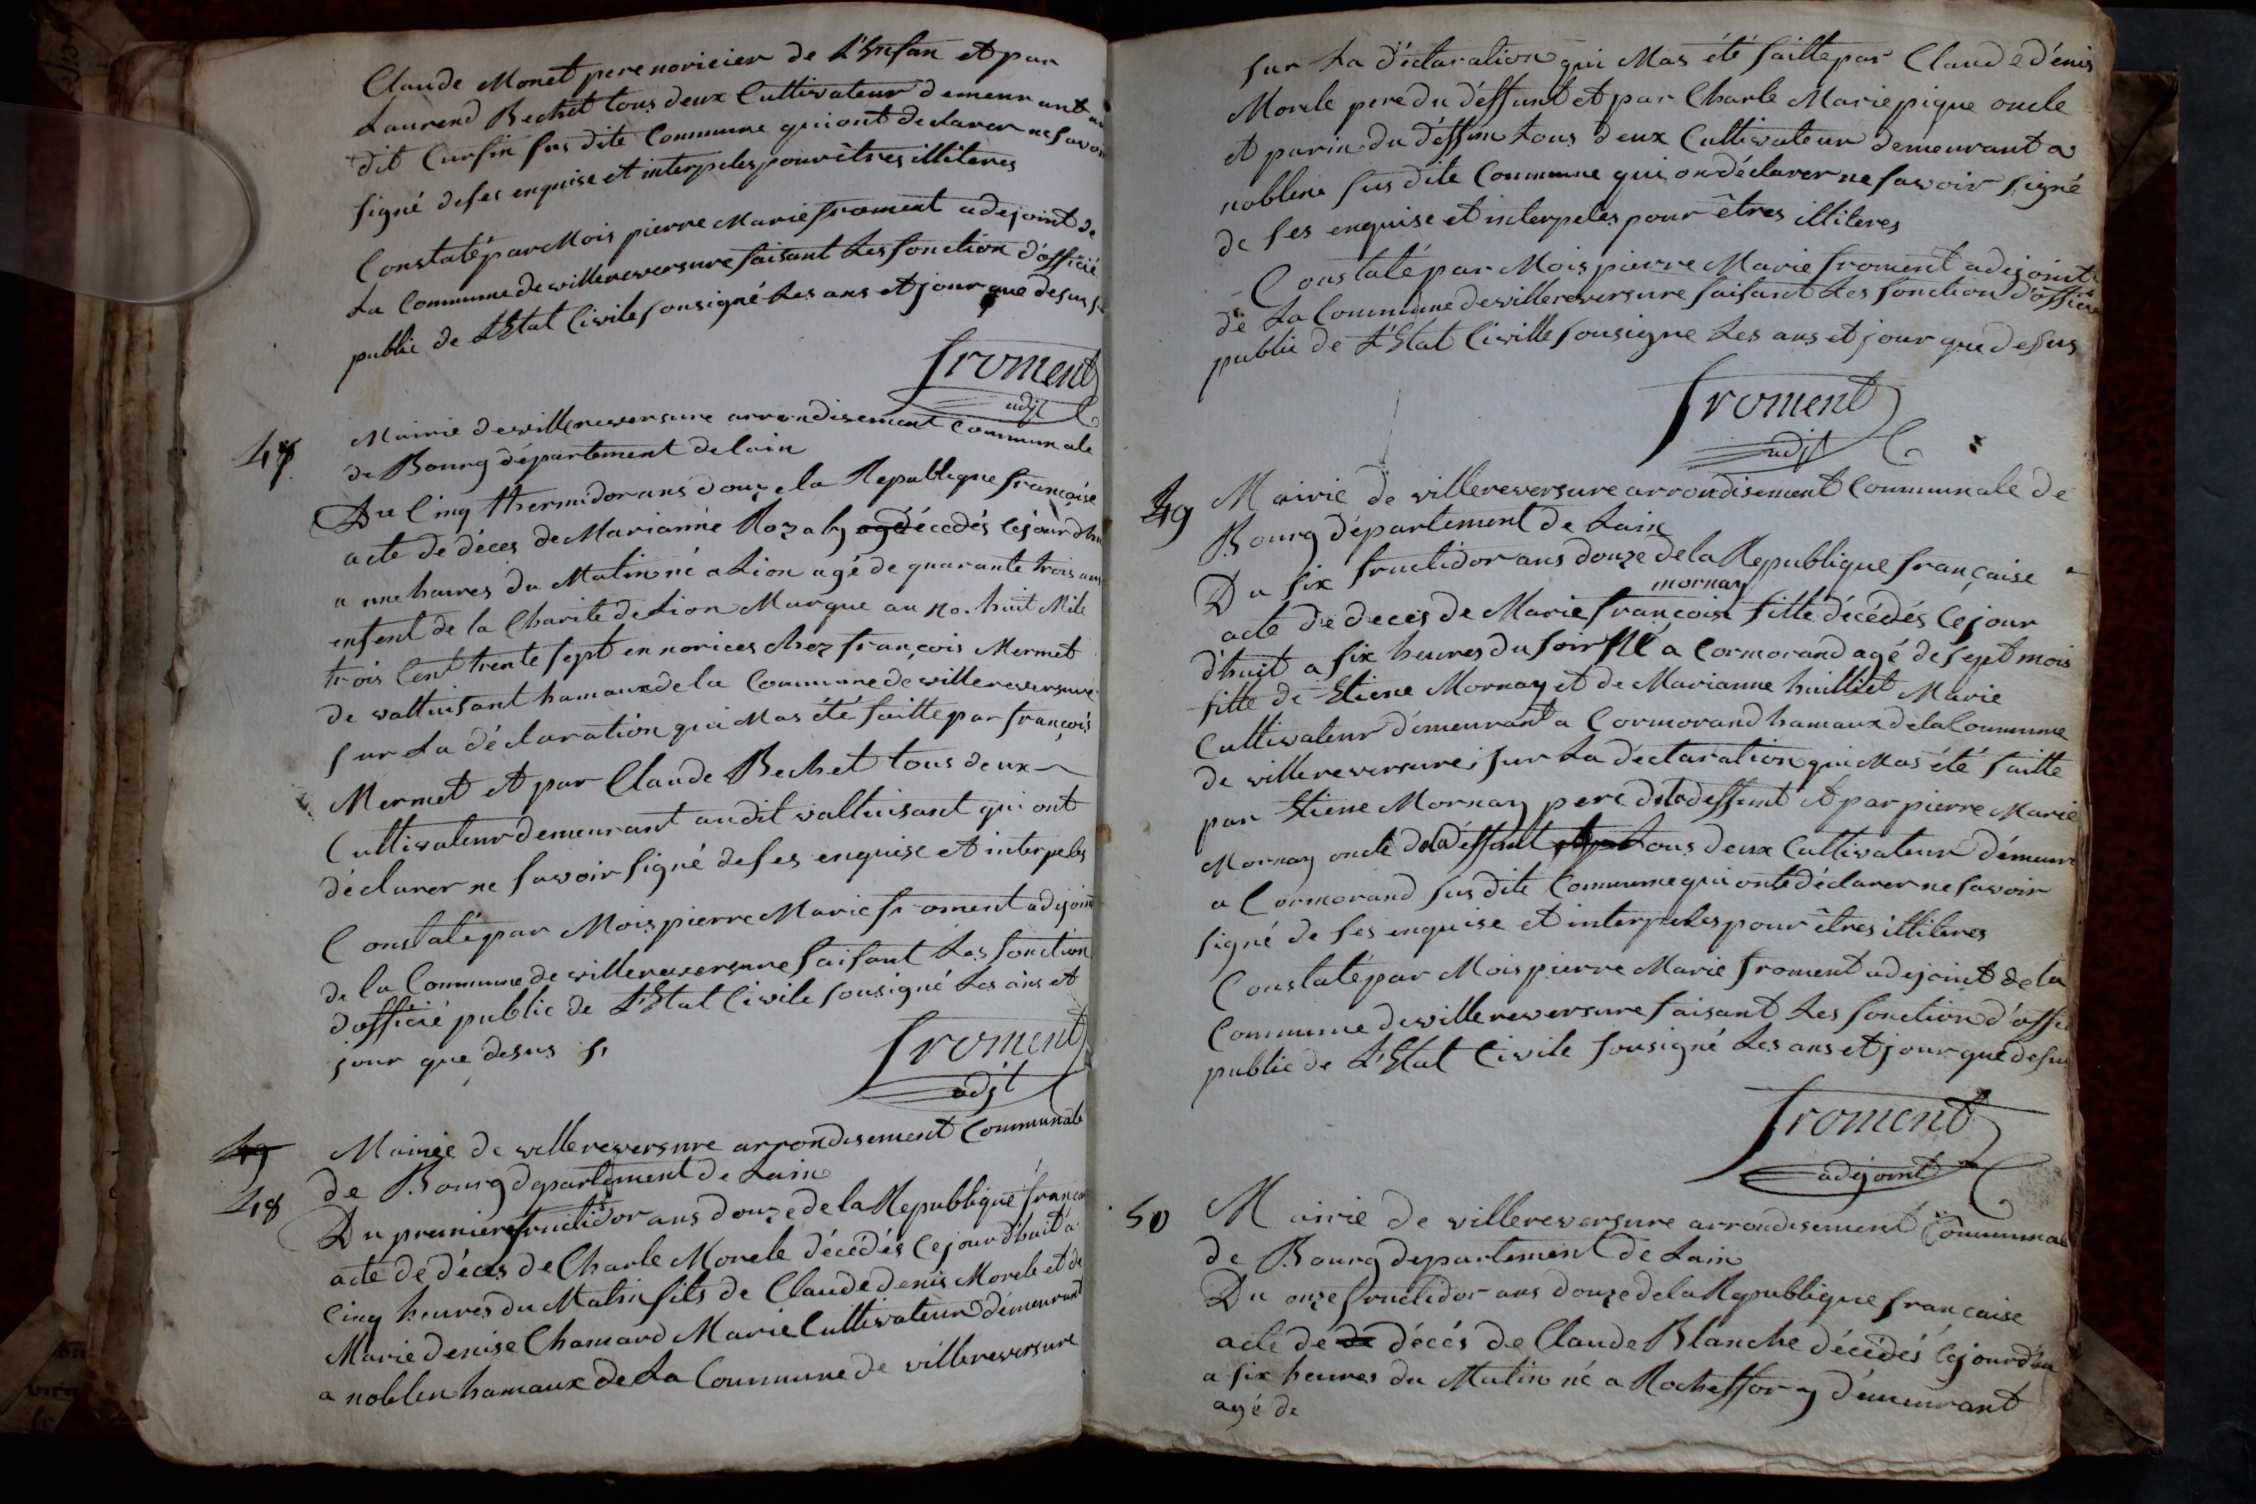 Claude Monet pere noricier de L'Enfan et par
Laurend Bechet tous deux Cultivateur demeurant au
dit Curfin sus dite Commune qui ont declarer ne savoir
signé de ses enquise et interpeles pour êtres illiteres
Constaté par Mois pierre Marie froment adejoint de
La Commune de villereversure faisant Les fonction d'officié
public de L'Etat Civile sousigné Les ans et jour que desus
froment
adjt
47
Mairie de villereversure arrondisement Communale
de Bourg département de lain
Du Cinq thermidor ans douze la Republique française
acte de déces de Marianne Rozaly agé décedés cejourdhui
a une heures du Matin né a Lion agé de quarante trois ans
enfent de la Charité de Lion Marque au no. huit Mile
trois Cent trente sept en norices chez françois Mermet
de valtuisant hamaux de la Commune de villereversure
sur La déclaration qui Mas été faitte par françois
Mermet et par Claude Bechet tous deux
Cultivateur demeurant audit valtuisant qui ont
déclarer ne savoir signé de ses enquise et interpeles
Constaté par Mois pierre Marie froment adejoint
de la Commune de villereversure faisant Les fonction
d'officié public de L'Etat Civile sousigné Les ans et
jour que desus
froment
adjt
49
48
Mairie de villereversure arrondisement Communale
de Bourg departement de Lain
Du premier fructidor ans douze de la Republique français
acte de déces de Charle Morele décédés Cejourd'huit à
Cinq heures du Matin fils de Claude denis Morele et de
Marie denise Chamard Marie Cultivateur démeurant
a noblen hamaux de La Commune de villereversure
sur La déclaration qui Mas été faitte par Claude dénis
Morele pere du déffunt et par Charle Marie pique oncle
et parin du déffun tous deux Cultivateur demeurant a
noblene sus dite Commune qui on déclarer ne savoir signé
de ses enquise et interpeles pour êtres illiteres
Constaté par Mois pierre Marie froment adejoint
de La Commune de villereversure faisant Les fonction d'officié
public de L'Etat Civille sousigne Les ans et jour que desus
froment
adjt
49
Mairie de villereversure arrondisement Communale de
Bourg département de Lain
Du six fructidor ans douze de la Republique française
mornay
acte de deces de Marie françoise fille décédés Cejour
d'huit a six heures du soir Né a Cormorand agé de sept mois
fille de Etiene Mornay et de Marianne huilliet Marie
Cultivateur démeurant a Cormorand hamaux de la Commune
de villereversure sur La déclaration qui Mas été faitte
par Etiene Mornay pere dela deffunt et par pierre Marie
Mornay oncle dela déffunt tous deux Cultivateur démeurt
a Cormorand sus dite Commune qui onte déclarer ne savoir
signé de ses enquise et interpeles pour êtres illiteres
Constaté par Mois pierre Marie froment adejoint de la
Commune de villereversure faisant Les fonction d'offic
public de L'Etat Civile sousigné Les ans et jour que desus
froment
adejoint
50
Mairie de villereversure arrondisement Communale
de Bourg departement de Lain
Du onze fructidor ans douze de la Republique française
acte dé de décés de Claude Blanche décédés Cejourdhui
a six heures du Matin né a Rocheffor y démeurant
agé de